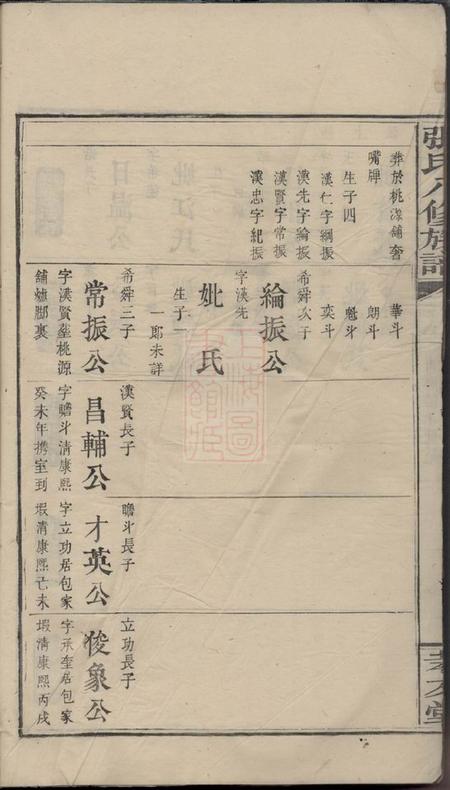 張氏八修族譜
孝友堂
葬於桃源舖奢
嘴牌
生子四
漢仁字綱振
漢先字綸振
漢賢字常振
漢忠字紀振
華斗
朗斗
魁斗
奕斗
希舜次子
綸振公
字漢先
妣氏
生子一
一郎未詳
希舜三子
常振公
字漢賢塟桃源
舖爐脚裏
漢賢長子
昌輔公
字瞻斗清康熙
癸未年携室到
瞻斗長子
才英公
字立功居包家
塅清康熙己未
立功長子
俊象公
字承奎居包家
塅清康熙丙戌